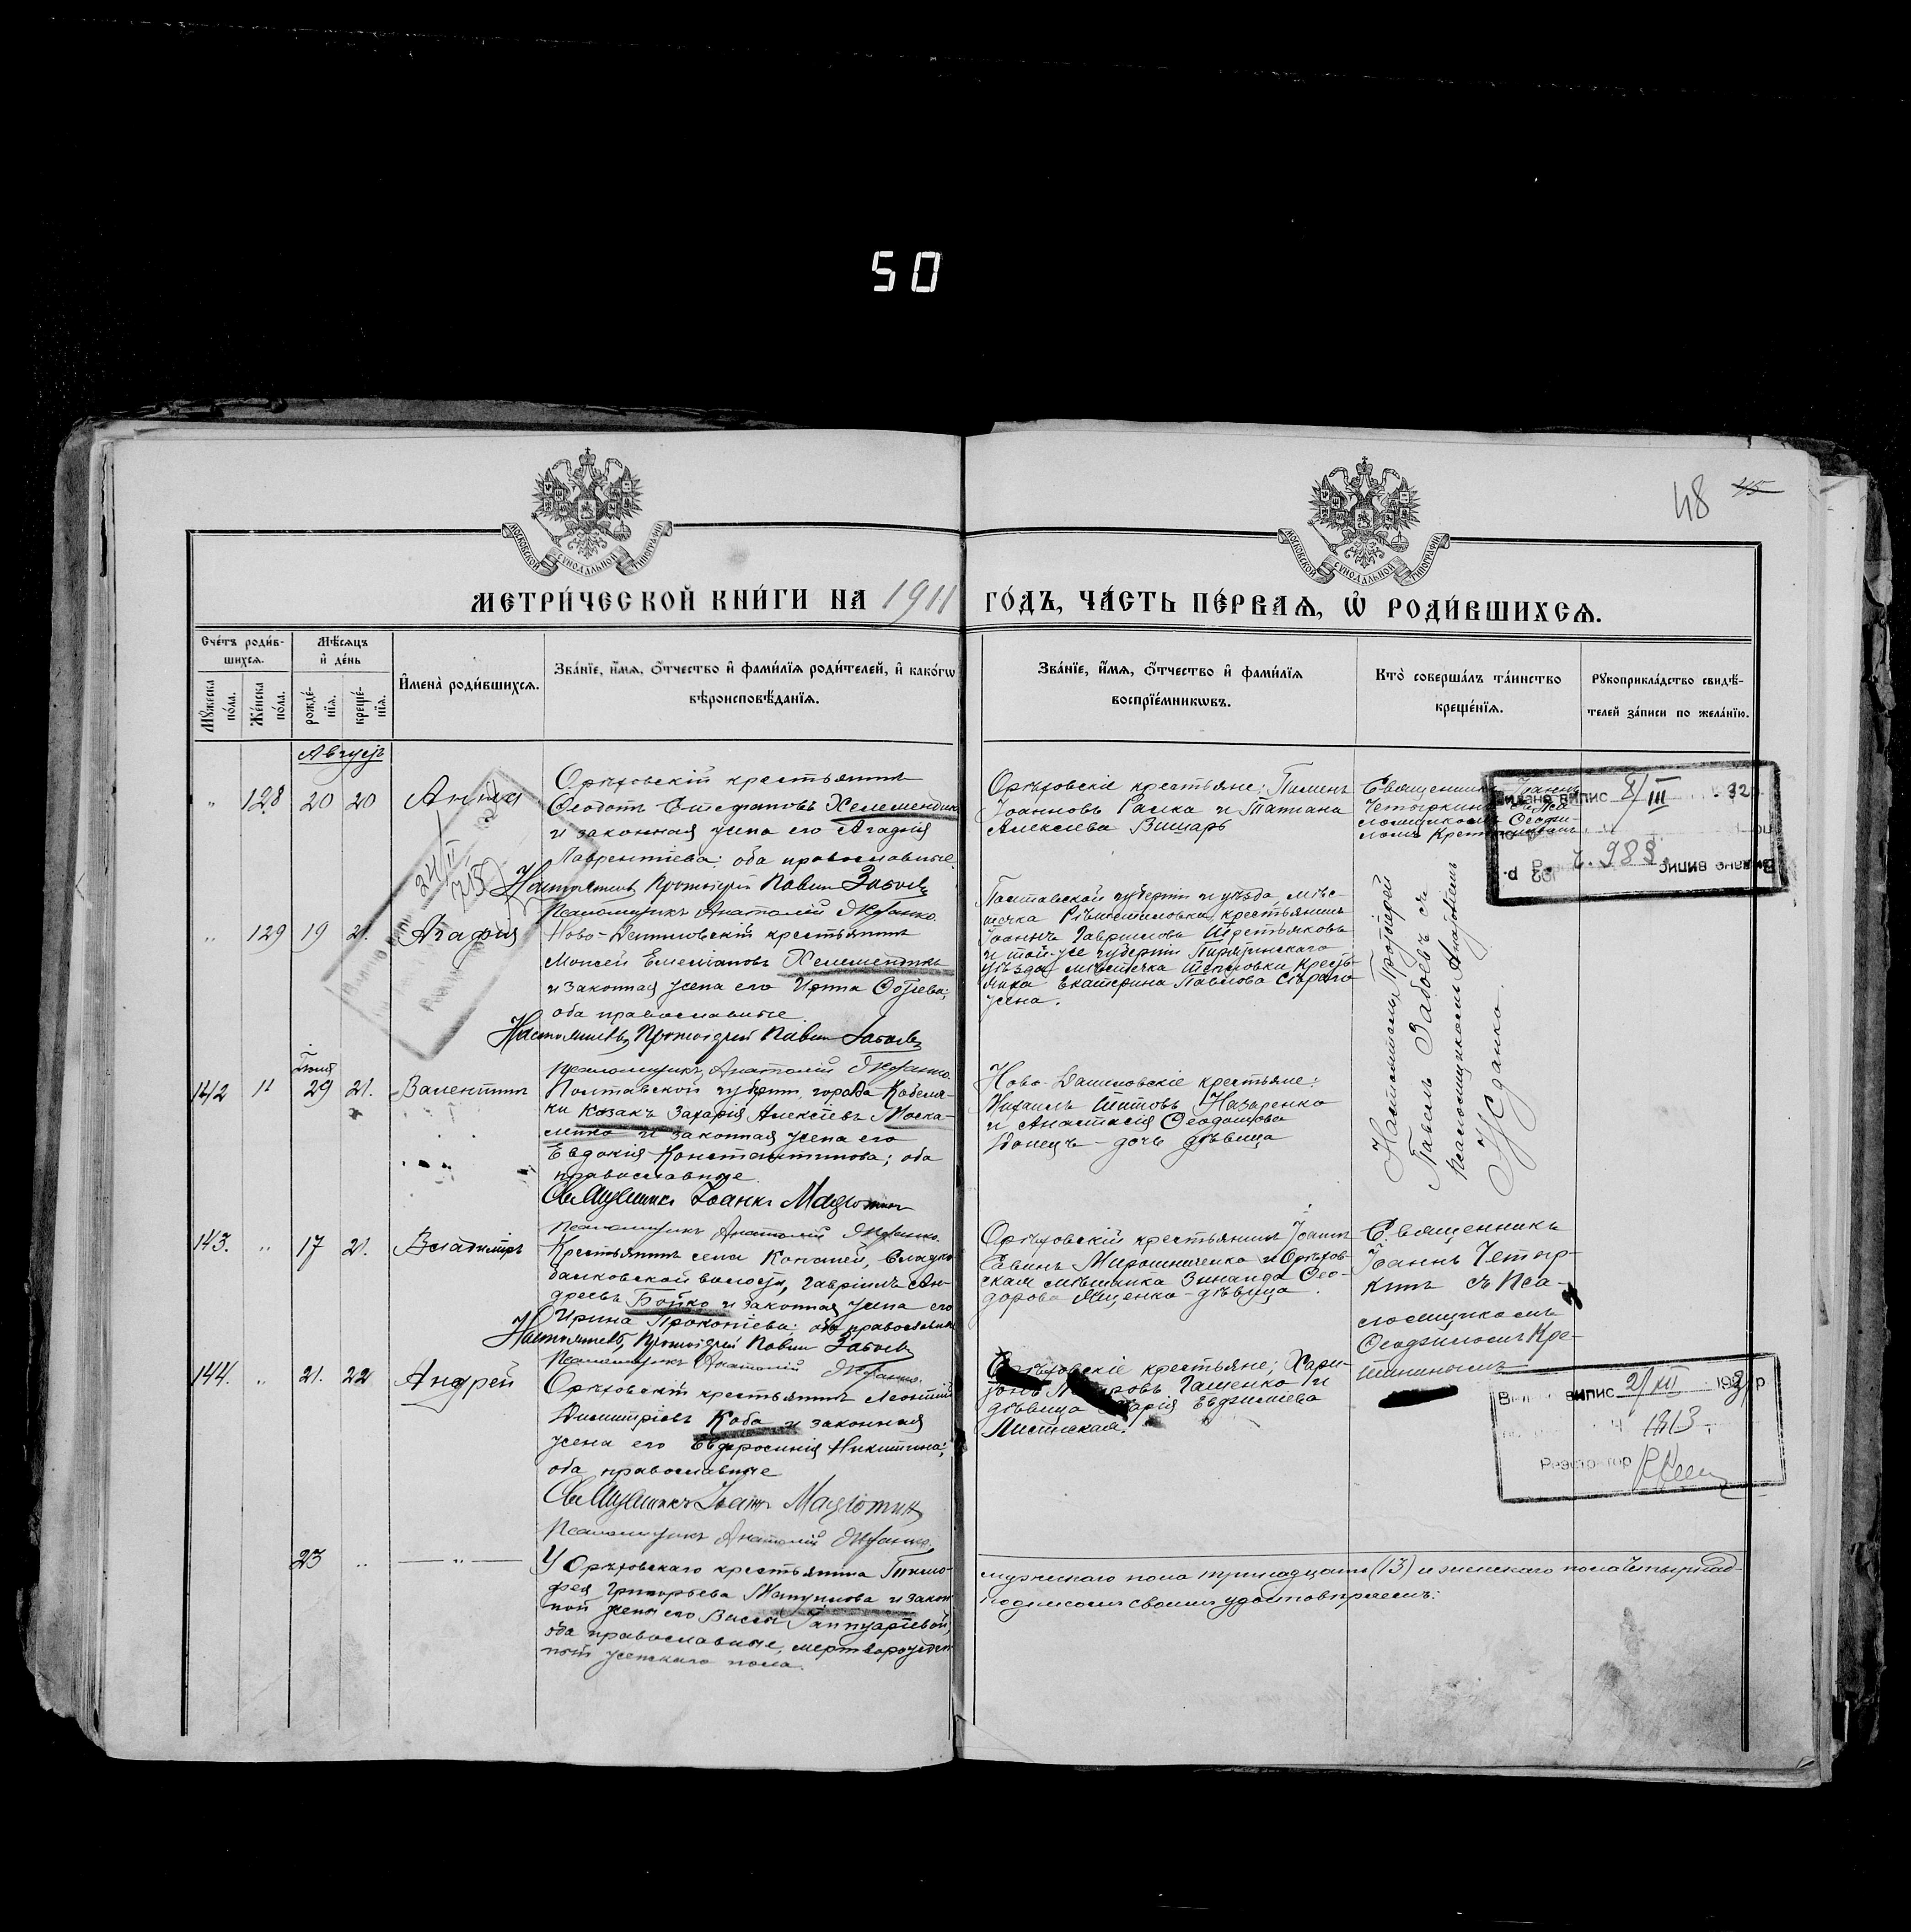 50
48 45
МОСКОВСКОЙ СѴНОДАЛЬНОЙ ТИПОГРАФІИ
МОСКОВСКОЙ СѴНОДАЛЬНОЙ ТИПОГРАФІИ
МЕТРИ́ЧЕСКОЙ КНИ́ГИ НА 1911 ГО́ДЪ, ЧА́СТЬ ПЕ́РВАѦ, Ѡ҆ РОДИ́ВШИХСѦ.
Сче́тъ роди́в-
шихсѧ.
Мꙋ́жеска по́ла.
Же́нска по́ла.
Мѣ́сѧцъ
и҆ де́нь
рожде́-
нїѧ.
креще́-
нїѧ.
И҆мена̀ роди́вшихсѧ.
Зва́нїе, и҆́мѧ, ѻ҆́тчество и҆ фами́лїѧ роди́телей, и҆ како́гѡ
вѣроисповѣ́данїѧ.
Зва́нїе, и҆́мѧ, ѻ҆́тчество и҆ фами́лїѧ
воспрїе́мникѡвъ.
Кто̀ соверша́лъ та́инство
креще́нїѧ.
Рꙋкоприкла́дство свидѣ́-
телей за́писи по жела́нїю.
Августъ
" 128 20 20 Анна
Орѣховскій крестьянинъ
Ѳеодотъ Стефановъ Хелемендикъ
и законная жена его Агафія
Лаврентіева: оба православные
Настоятель Протоіерей Павелъ Забоевъ
Псаломщикъ Анатолій Жданко.
Орѣховскіе крестьяне: Пименъ
Іоанновъ Гаека и Татіана
Алексіева Вишарь
Священникъ Іоаннъ
Четыркинъ съ Пса-
ломщикомъ Ѳеофи-
ломъ
Видано випис 8/III 32
ч. 983
" 129 19 21. Агафія
Ново-Даниловскій крестьянинъ
Моисей Емеліановъ Хелемендикъ
и законная жена его Ирина Фотіева;
оба православные.
Настоятель, Протоіерей Павелъ Забоевъ
Псаломщикъ, Анатолій Жданко.
Полтавской губерніи и уѣзда, мѣс-
течка Рѣшетиловки, крестьянинъ
Іоаннъ Гавриловъ Третьяковъ
и той-же губерніи Пирятинскаго
уѣзда мѣстечка крестья-
нка Екатерина Павлова
жена.
Настоятель, Протоіерей
Павелъ Забоевъ съ
псаломщикомъ Анатоліемъ
Жданко.
24/II
715
142 " Іюля 29 21. Валентинъ
Полтавской губерніи, города Кобеля-
ки козакъ Захарія Алексіевъ Моска-
ленко и законная жена его
Евдокія Константинова; оба
православные
Священникъ Іоаннъ
Псаломщикъ Анатолій Жданко.
Ново-Даниловскіе крестьяне:
Михаилъ Титовъ Назаренко
и Анастасія Ѳеодотова
Донецъ - дочь дѣвица
143. " 17 21. Владиміръ
Крестьянинъ села Копаней, Сладко-
балковской волости, Гавріилъ Ан-
дреевъ Бойко и законная жена его
Ирина Прокопіева: оба православные
Настоятель, Протоіерей Павелъ Забоевъ
Псаломщикъ Анатолій Жданко.
Орѣховскій крестьянинъ Іоаннъ
Савинъ Мирошниченко и Орѣхов-
ская мѣщанка Зинаида Ѳео-
дорова Яценко - дѣвица.
Священникъ
Іоаннъ Четыр-
кинъ съ Пса-
ломщикомъ
Ѳеофиломъ Кре-
144. " 21. 22 Андрей
Орѣховскій крестьянинъ Леонтій
Димитріевъ Коба и законная
жена его Евфросинія Никитина;
оба православные
Священникъ Іоаннъ
Псаломщикъ Анатолій Жданко.
Орѣховскіе крестьяне; Хари-
тонъ Гащенко и
дѣвица Марія Евфиміева
випис 2/XII 193 р
ч 1813
Реєстратор
23 " — " —
У Орѣховскаго крестьянина Тимо-
фея Григорьева и закон-
ной жены его Вассы Іаннуаріевой,
оба православные, мертворожден-
ный женскаго пола.
мужескаго пола тринадцать (13) и женскаго пола четырнад-
подписомъ своимъ удостовѣряемъ: